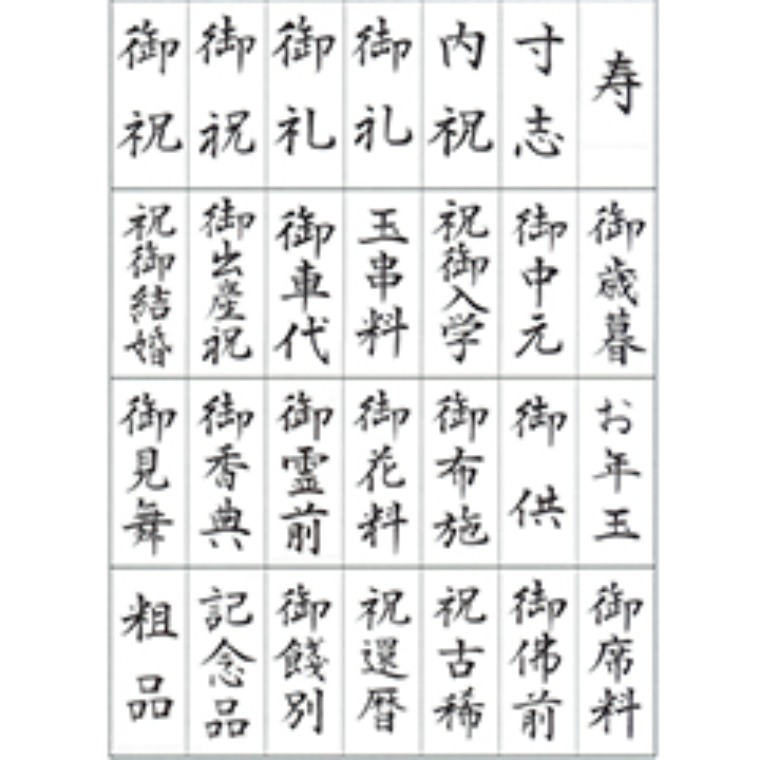 寿
寸志
内祝
御礼
御礼
御祝
御祝
御歳暮
御中元
祝御入学
玉串料
御車代
御出産祝
祝御結婚
お年玉
御供
御布施
御花料
御霊前
御香典
御見舞
御席料
御佛前
祝古稀
祝還暦
御餞別
記念品
粗品